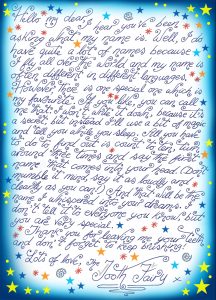 Hello my dear,
I hear you've been
asking what my name is. Well, I do
have quite a lot of names because
I fly all over the world and my name is
often different in different languages.
However, there is one special one which is
my favourite. If you like, you can call
me it. I won't write it down, because it's
a secret, but instead I'll use a bit of magic
and tell you while you sleep. All you have
to do to find out is count to ten, turn
around three times and say the first
name that comes into your head. Don't
mumble it, must say it as loudly and
clearly as you can! And that will be the
name I whispered into your dreams. I
don't tell it to everyone you know, but
you are very special.
Thank you for leaving me your teeth
and don't forget to keep brushing!
Lots of love,
The Tooth Fairy x